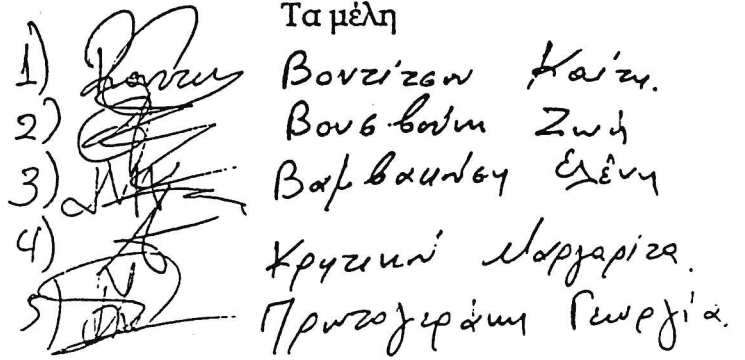 Τα μέλη
1) Βοντίτσου Καίτη.
2) Βουβούκη Ζωή
3) Βαμβακούση Ελένη
4) Κρητικού Μαργαρίτα.
5) Πρωτογεράκη Γεωργία.